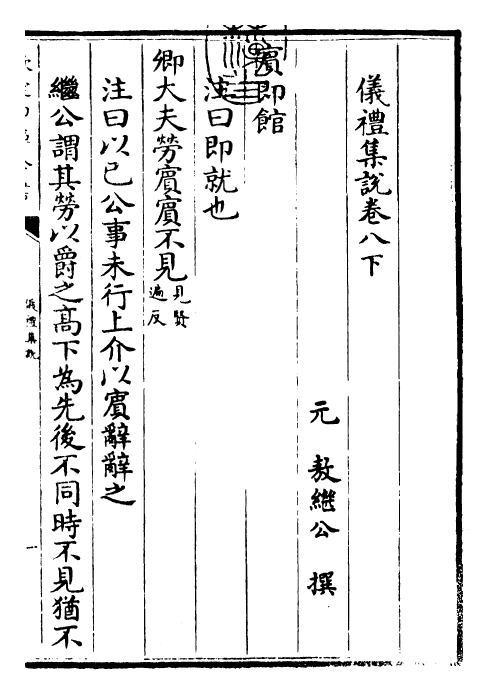 儀禮集説卷八下
元 敖繼公 撰
賓即館
注曰即就也
卿大夫勞賓賓不見見賢遍反
注曰以已公事未行上介以賓辭辭之
繼公謂其勞以爵之髙下為先後不同時不見猶不
儀禮集説
一